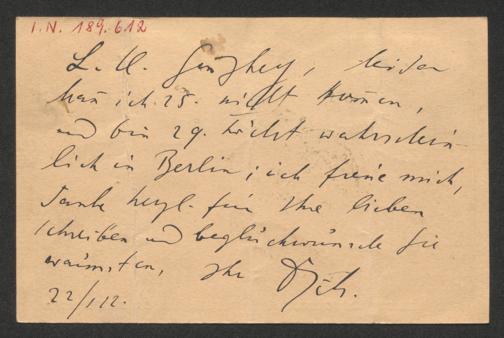 I.N. 189.612
L. H. leider
kann ich 25. nicht kommen,
und bin 29. höchst wahrschein-
lich in Berlin; ich freue mich,
danke herzl. für Ihre lieben
Schreiben und beglückwünsche Sie
wärmstens, Ihr
22/XII.